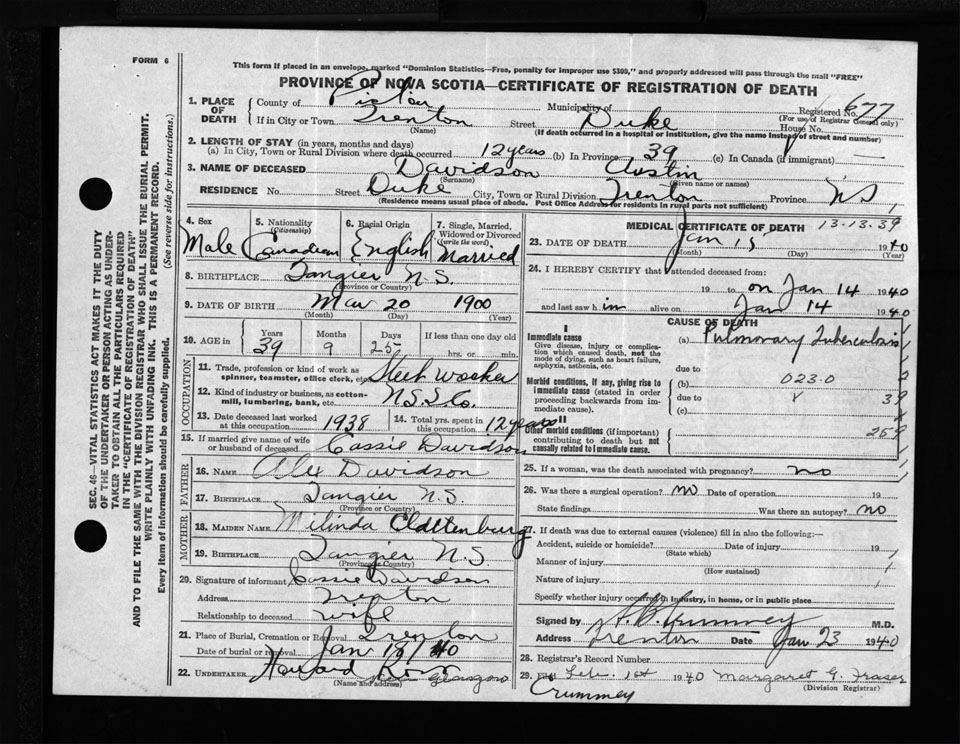 FORM 6
This form if placed in an envelope, marked "Dominion Statistics—Free, penalty for improper use $300," and properly addressed will pass through the mail "FREE"
PROVINCE OF NOVA SCOTIA—CERTIFICATE OF REGISTRATION OF DEATH
1. PLACE OF DEATH County of Pictou Municipality of Registered No. 677
(For use of Registrar General only)
If in City or Town Trenton Street Duke House No.
(Name) (If death occurred in a hospital or institution, give the name instead of street and number)
2. LENGTH OF STAY (in years, months and days)
(a) In City, Town or Rural Division where death occurred 12 years (b) In Province 39 (c) In Canada (if immigrant) —
3. NAME OF DECEASED Davidson Austin
(Surname) (Given name or names)
RESIDENCE No. Street Duke City, Town or Rural Division Trenton Province NS
(Residence means usual place of abode. Post Office Address for residents in rural parts not sufficient)
4. Sex 5. Nationality (Citizenship) 6. Racial Origin 7. Single, Married, Widowed or Divorced (write the word)
Male Canadian English Married
8. BIRTHPLACE Tangier N.S.
(Province or Country)
9. DATE OF BIRTH Mar 20 1900
(Month) (Day) (Year)
10. AGE in Years Months Days If less than one day old
39 9 25 hrs. or min.
OCCUPATION
11. Trade, profession or kind of work as spinner, teamster, office clerk, etc. Steel worker
12. Kind of industry or business, as cotton-mill, lumbering, bank, etc. N.S.S.Co.
13. Date deceased last worked at this occupation 1938 14. Total yrs. spent in this occupation 12 years
15. If married give name of wife or husband of deceased Cassie Davidson
FATHER
16. NAME Alex Davidson
17. BIRTHPLACE Tangier N.S.
(Province or Country)
MOTHER
18. MAIDEN NAME Milinda
19. BIRTHPLACE Tangier N.S
(Province or Country)
20. Signature of informant Cassie Davidson
Address Trenton
Relationship to deceased wife
21. Place of Burial, Cremation or Removal Trenton
Date of burial or removal Jan 18/40
22. UNDERTAKER Glasgow
(Name and address)
MEDICAL CERTIFICATE OF DEATH 13-13-39
23. DATE OF DEATH Jan 15 1940
(Month) (Day) (Year)
24. I HEREBY CERTIFY that I attended deceased from
19 to on Jan 14 1940
and last saw him alive on Jan 14 1940
CAUSE OF DEATH
I
Immediate cause (a) Pulmonary Tuberculosis
Give disease, injury or complication which caused death, not the mode of dying, such as heart failure, asphyxia, asthenia, etc.
due to
Morbid conditions, if any, giving rise to immediate cause (stated in order proceeding backwards from immediate cause).
(b) 023.0
due to 39
(c)
II
Other morbid conditions (if important) contributing to death but not causally related to immediate cause.
259
25. If a woman, was the death associated with pregnancy? no
26. Was there a surgical operation? no Date of operation 19
State findings Was there an autopsy? no
27. If death was due to external causes (violence) fill in also the following:—
Accident, suicide or homicide? Date of injury 19
(State which)
Manner of injury
(How sustained)
Nature of injury
Specify whether injury occurred in industry, in home, or in public place
Signed by Crummey M.D.
Address Trenton Date Jan 23 1940
28. Registrar's Record Number
29. Filed Feb. 1st 1940 Margaret G. Fraser
(Division Registrar)
Crummey
SEC. 46—VITAL STATISTICS ACT MAKES IT THE DUTY
OF THE UNDERTAKER OR PERSON ACTING AS UNDER-
TAKER TO OBTAIN ALL THE PARTICULARS REQUIRED
IN THE "CERTIFICATE OF REGISTRATION OF DEATH"
AND TO FILE THE SAME WITH THE DIVISION REGISTRAR WHO SHALL ISSUE THE BURIAL PERMIT.
WRITE PLAINLY WITH UNFADING INK. THIS IS A PERMANENT RECORD.
Every item of information should be carefully supplied. (See reverse side for instructions.)